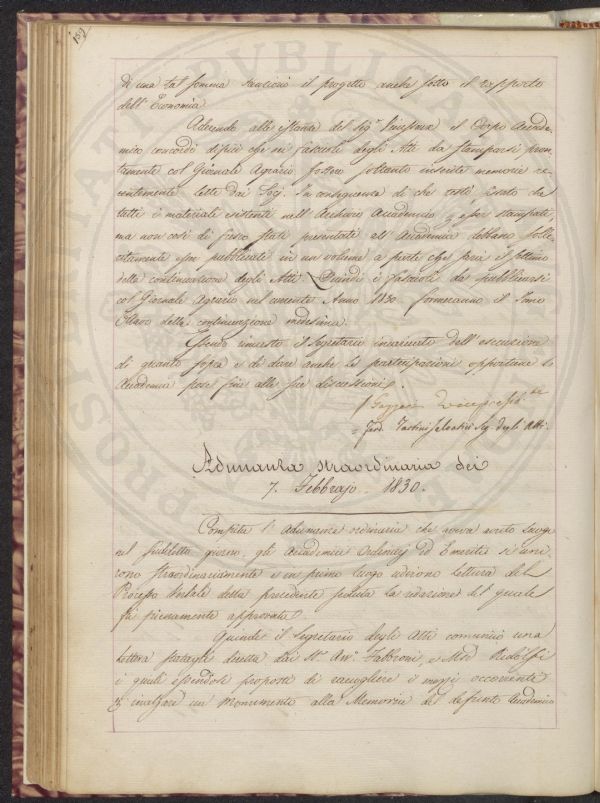 132
di una tal somma sanzionò il progetto anche sotto il rapporto
dell'Economia
Aderendo alle istanze del Sig.e il Corpo Accade-
mico concordò di che nei fascicoli degli Atti da stamparsi, pron-
tamente col Giornale Agrario fossero soltanto inserite memorie re-
centemente lette dai Socj. In conseguenza di che restò fissato che
tutti i materiali esistenti nell'Archivio Accademico p esser stampati,
ma non così di fresco stati presentati all'Accademia debbano solle-
citamente esser pubblicati in un volume a parte che sarà il settimo
della continuazione degli Atti. Quindi i fascicoli da pubblicarsi
col Giornale Agrario nel corrente Anno 1830. formeranno il Tomo
Ottavo della continuazione medesima.
Essendo rimesso il Segretario incaricato dell'esecuzione
di quanto sopra e di dare anche le partecipazioni opportune l'
Accademia pose fine alle sue discussioni.
Ferd. Tartini Salvatici Seg. degli Atti.
Adunanza straordinaria dei
7. Febbrajo 1830.
Compita l'Adunanza ordinaria che aveva avuto luogo
nel suddetto giorno, gli Accademici Ordinarj ed Emeriti si uni-
rono straordinariamente e in primo luogo udirono lettura del
Processo Verbale della precedente seduta la redazione del quale
fù pienamente approvata.
Quindi il Segretario degli Atti comunicò una
lettera diretta dai SS.ri Avv.o Fabbroni, e M.se Ridolfi
i quali essendosi proposti di raccogliere i mezzi occorrenti
p inalzare un Monumento alla Memoria del defunto Accademico